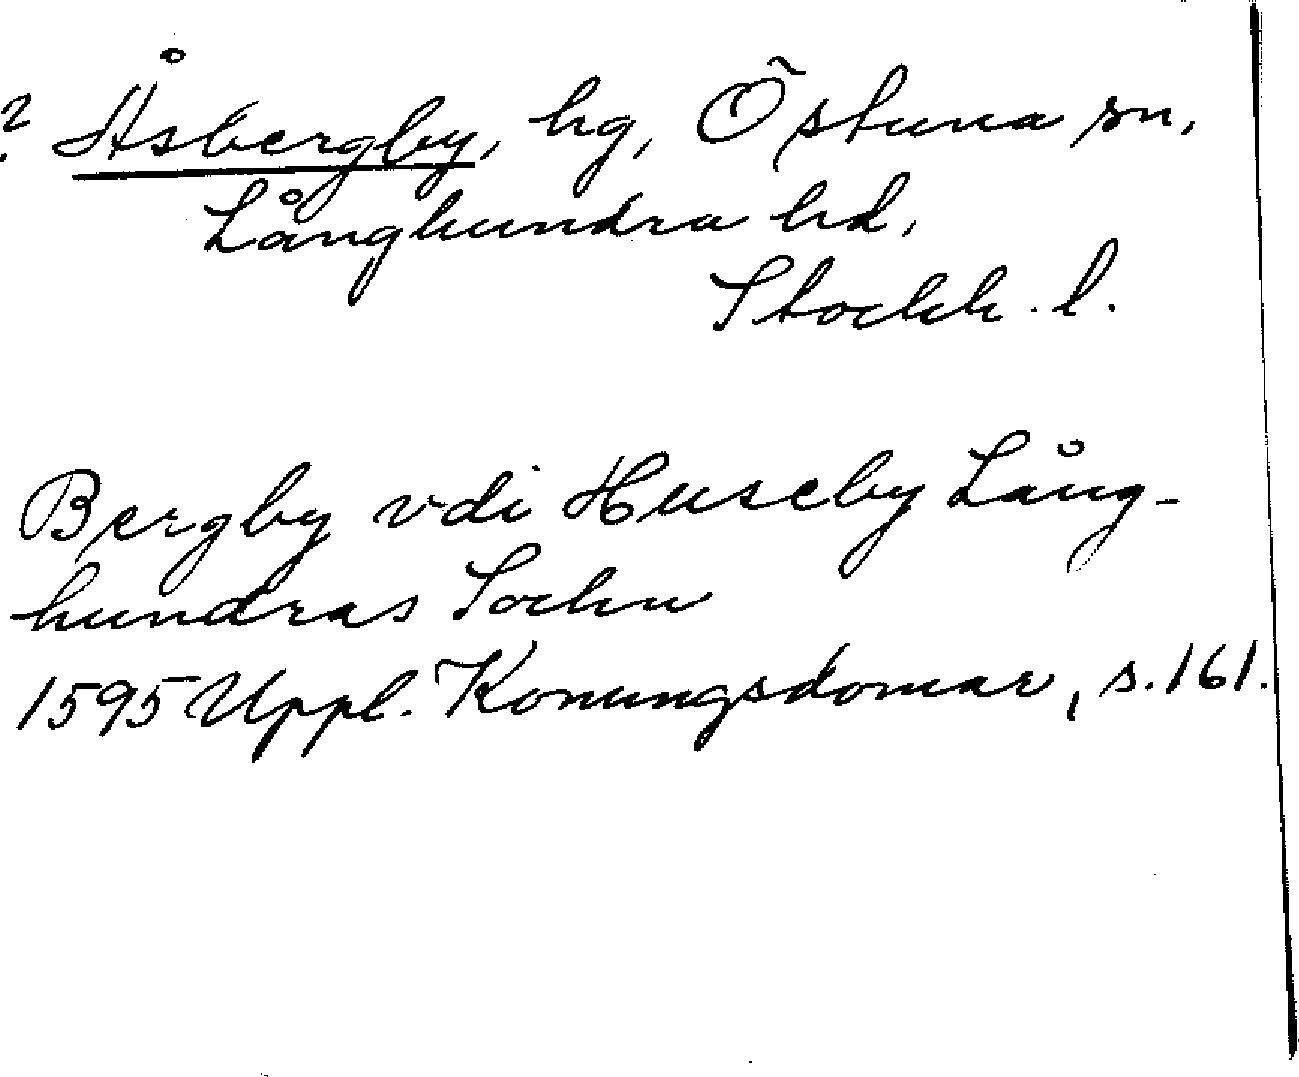 ? Åsbergby, hg, Östuna sn,
Långhundra hd,
Stockh. l.
Bergby vdi Huseby Lång-
hundras Sochn
1595 Uppl. Konungsdomar, s. 161.